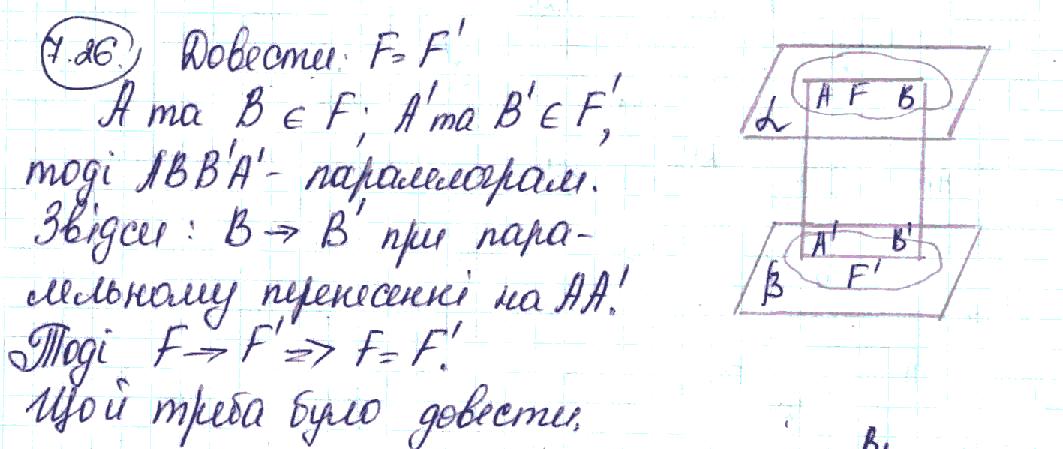 7.26. Довести: F = F'
A та B ∈ F; A' та B' ∈ F',
тоді ABB'A' - паралелограм.
Звідси: B → B' при пара-
лельному перенесенні на AA'.
Тоді F → F' => F = F'.
Що й треба було довести.
A F B
α
A' B'
F'
β
B₁